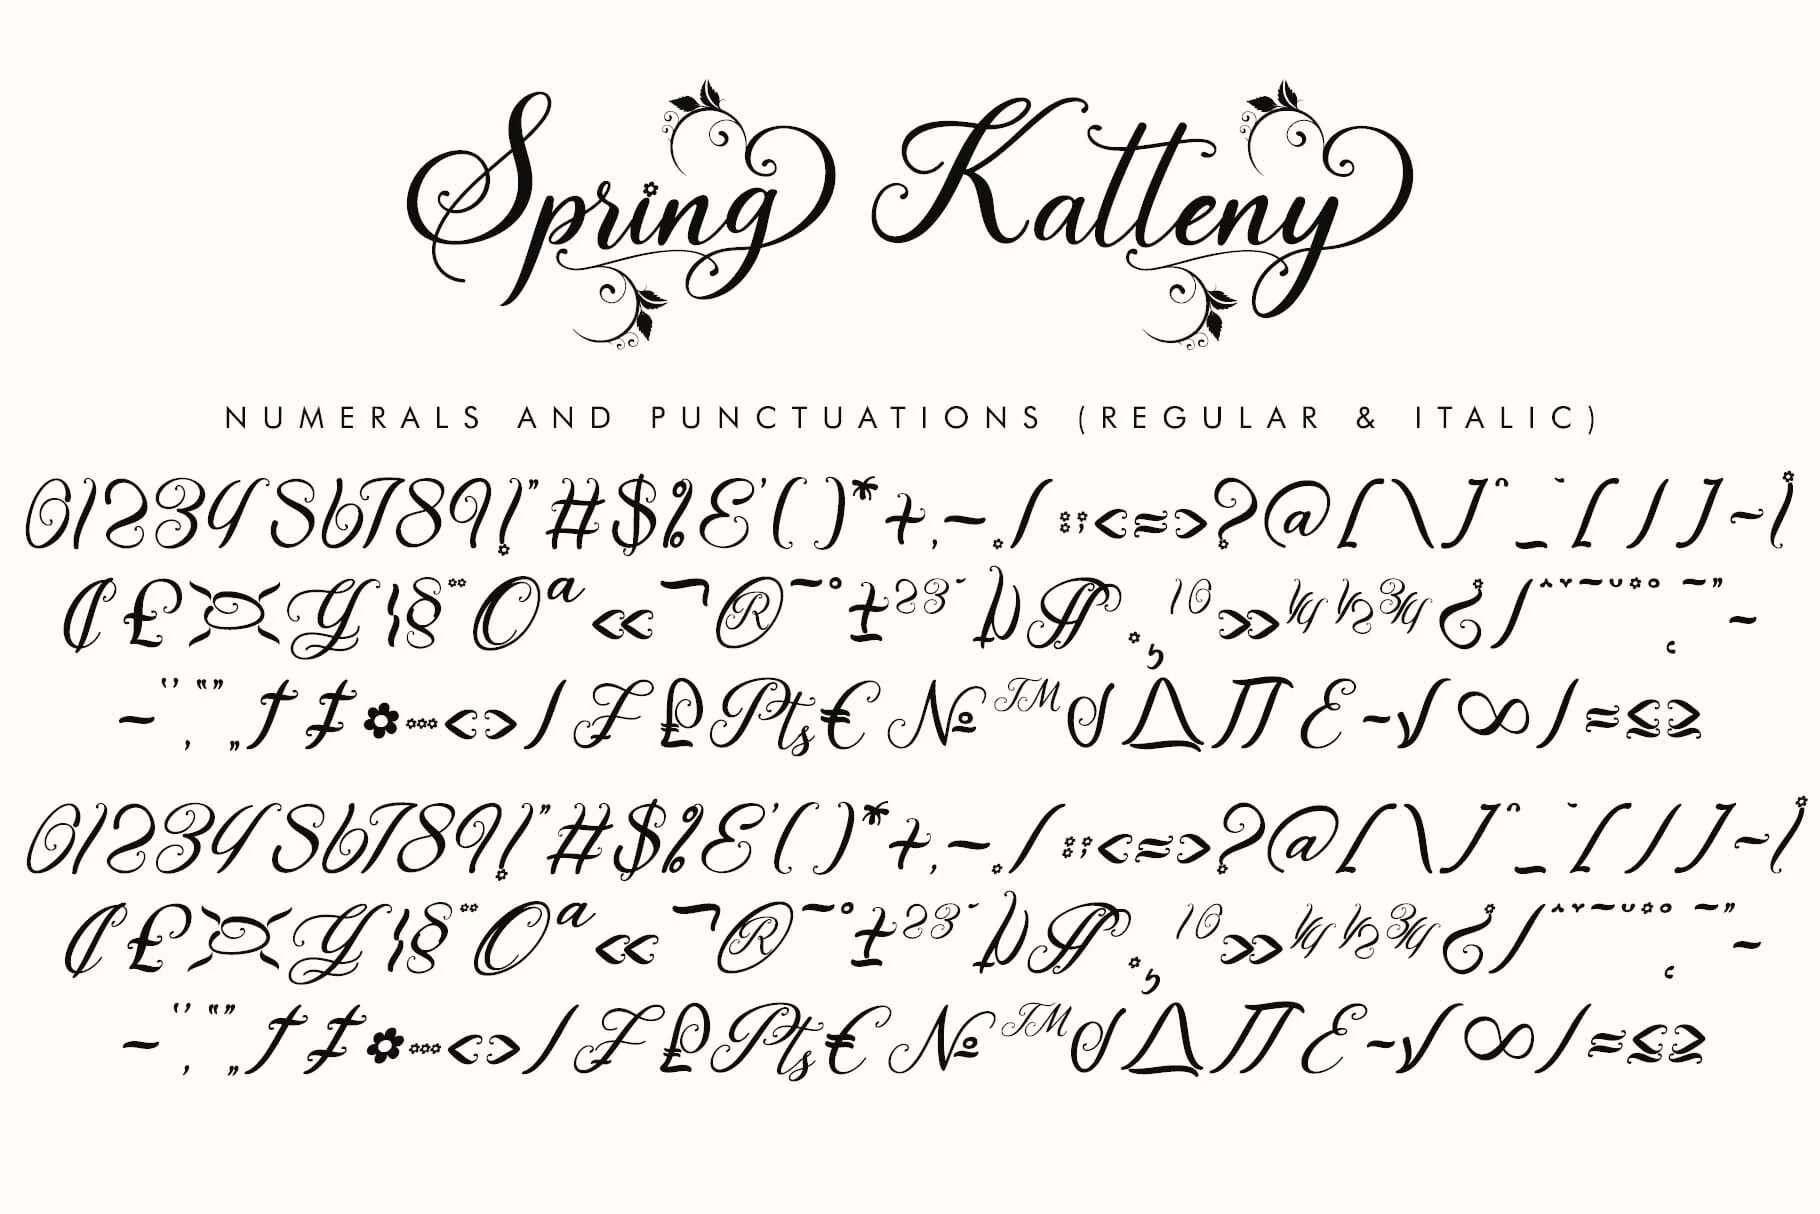 Spring Katteny
NUMERALS AND PUNCTUATIONS (REGULAR & ITALIC)
0123456789!"#$%&'()*+,-./:;<=>?@[\]^_`{|}~¡
¢£¤¥¦§¨©ª«¬®¯°±²³´µ¶·¸¹º»¼½¾¿ƒˆˇˉ˘˙˚˛˜˝–
—‘’‚“”„†‡•…‹›⁄₣₤₧€№™∂∆∏∑−√∞∫≈≤≥
0123456789!"#$%&'()*+,-./:;<=>?@[\]^_`{|}~¡
¢£¤¥¦§¨©ª«¬®¯°±²³´µ¶·¸¹º»¼½¾¿ƒˆˇˉ˘˙˚˛˜˝–
—‘’‚“”„†‡•…‹›⁄₣₤₧€№™∂∆∏∑−√∞∫≈≤≥